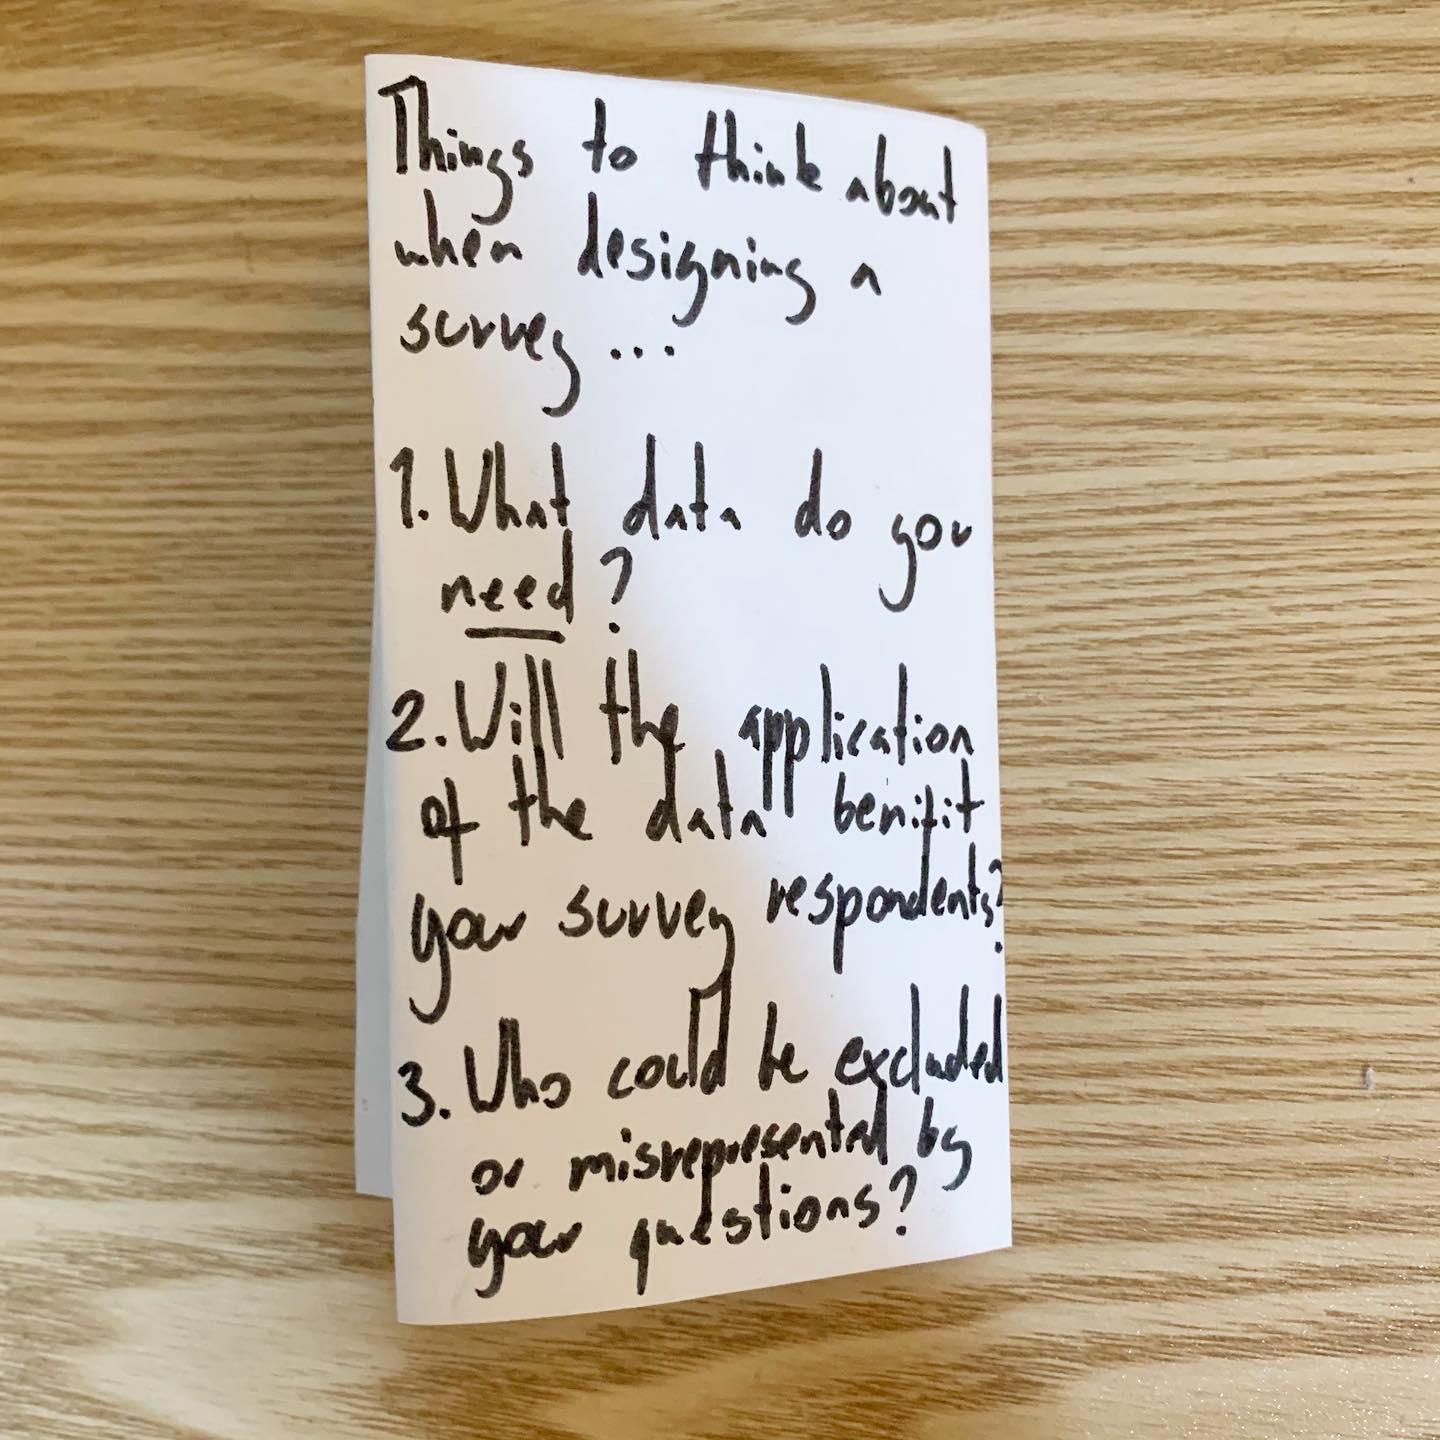 Things to think about
when designing a
survey ...
1. What data do you
need?
2. Will the application
of the data benifit
your survey respondents?
3. Who could be excluded
or misrepresented by
your questions?